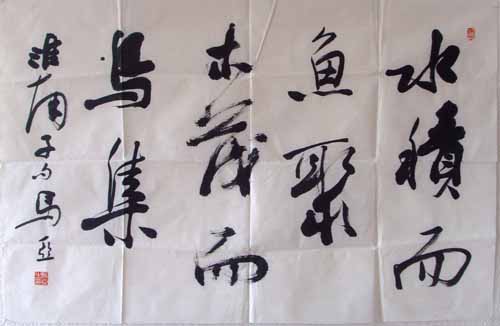 水積而
魚聚
木茂而
鳥集
淮南子句馬亞